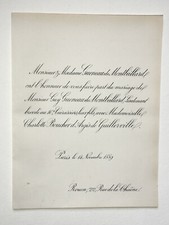 Monsieur & Madame Gueneau de Montbeillard
ont l'honneur de vous faire part du mariage de
Monsieur Guy Gueneau de Montbeillard, Lieutenant
breveté au 10e Cuirassiers, leur fils, avec Mademoiselle
Charlotte Boucher d'Argis de Guillerville.
Paris le 14 Novembre 1889
Rouen, Rue de la Chaîne